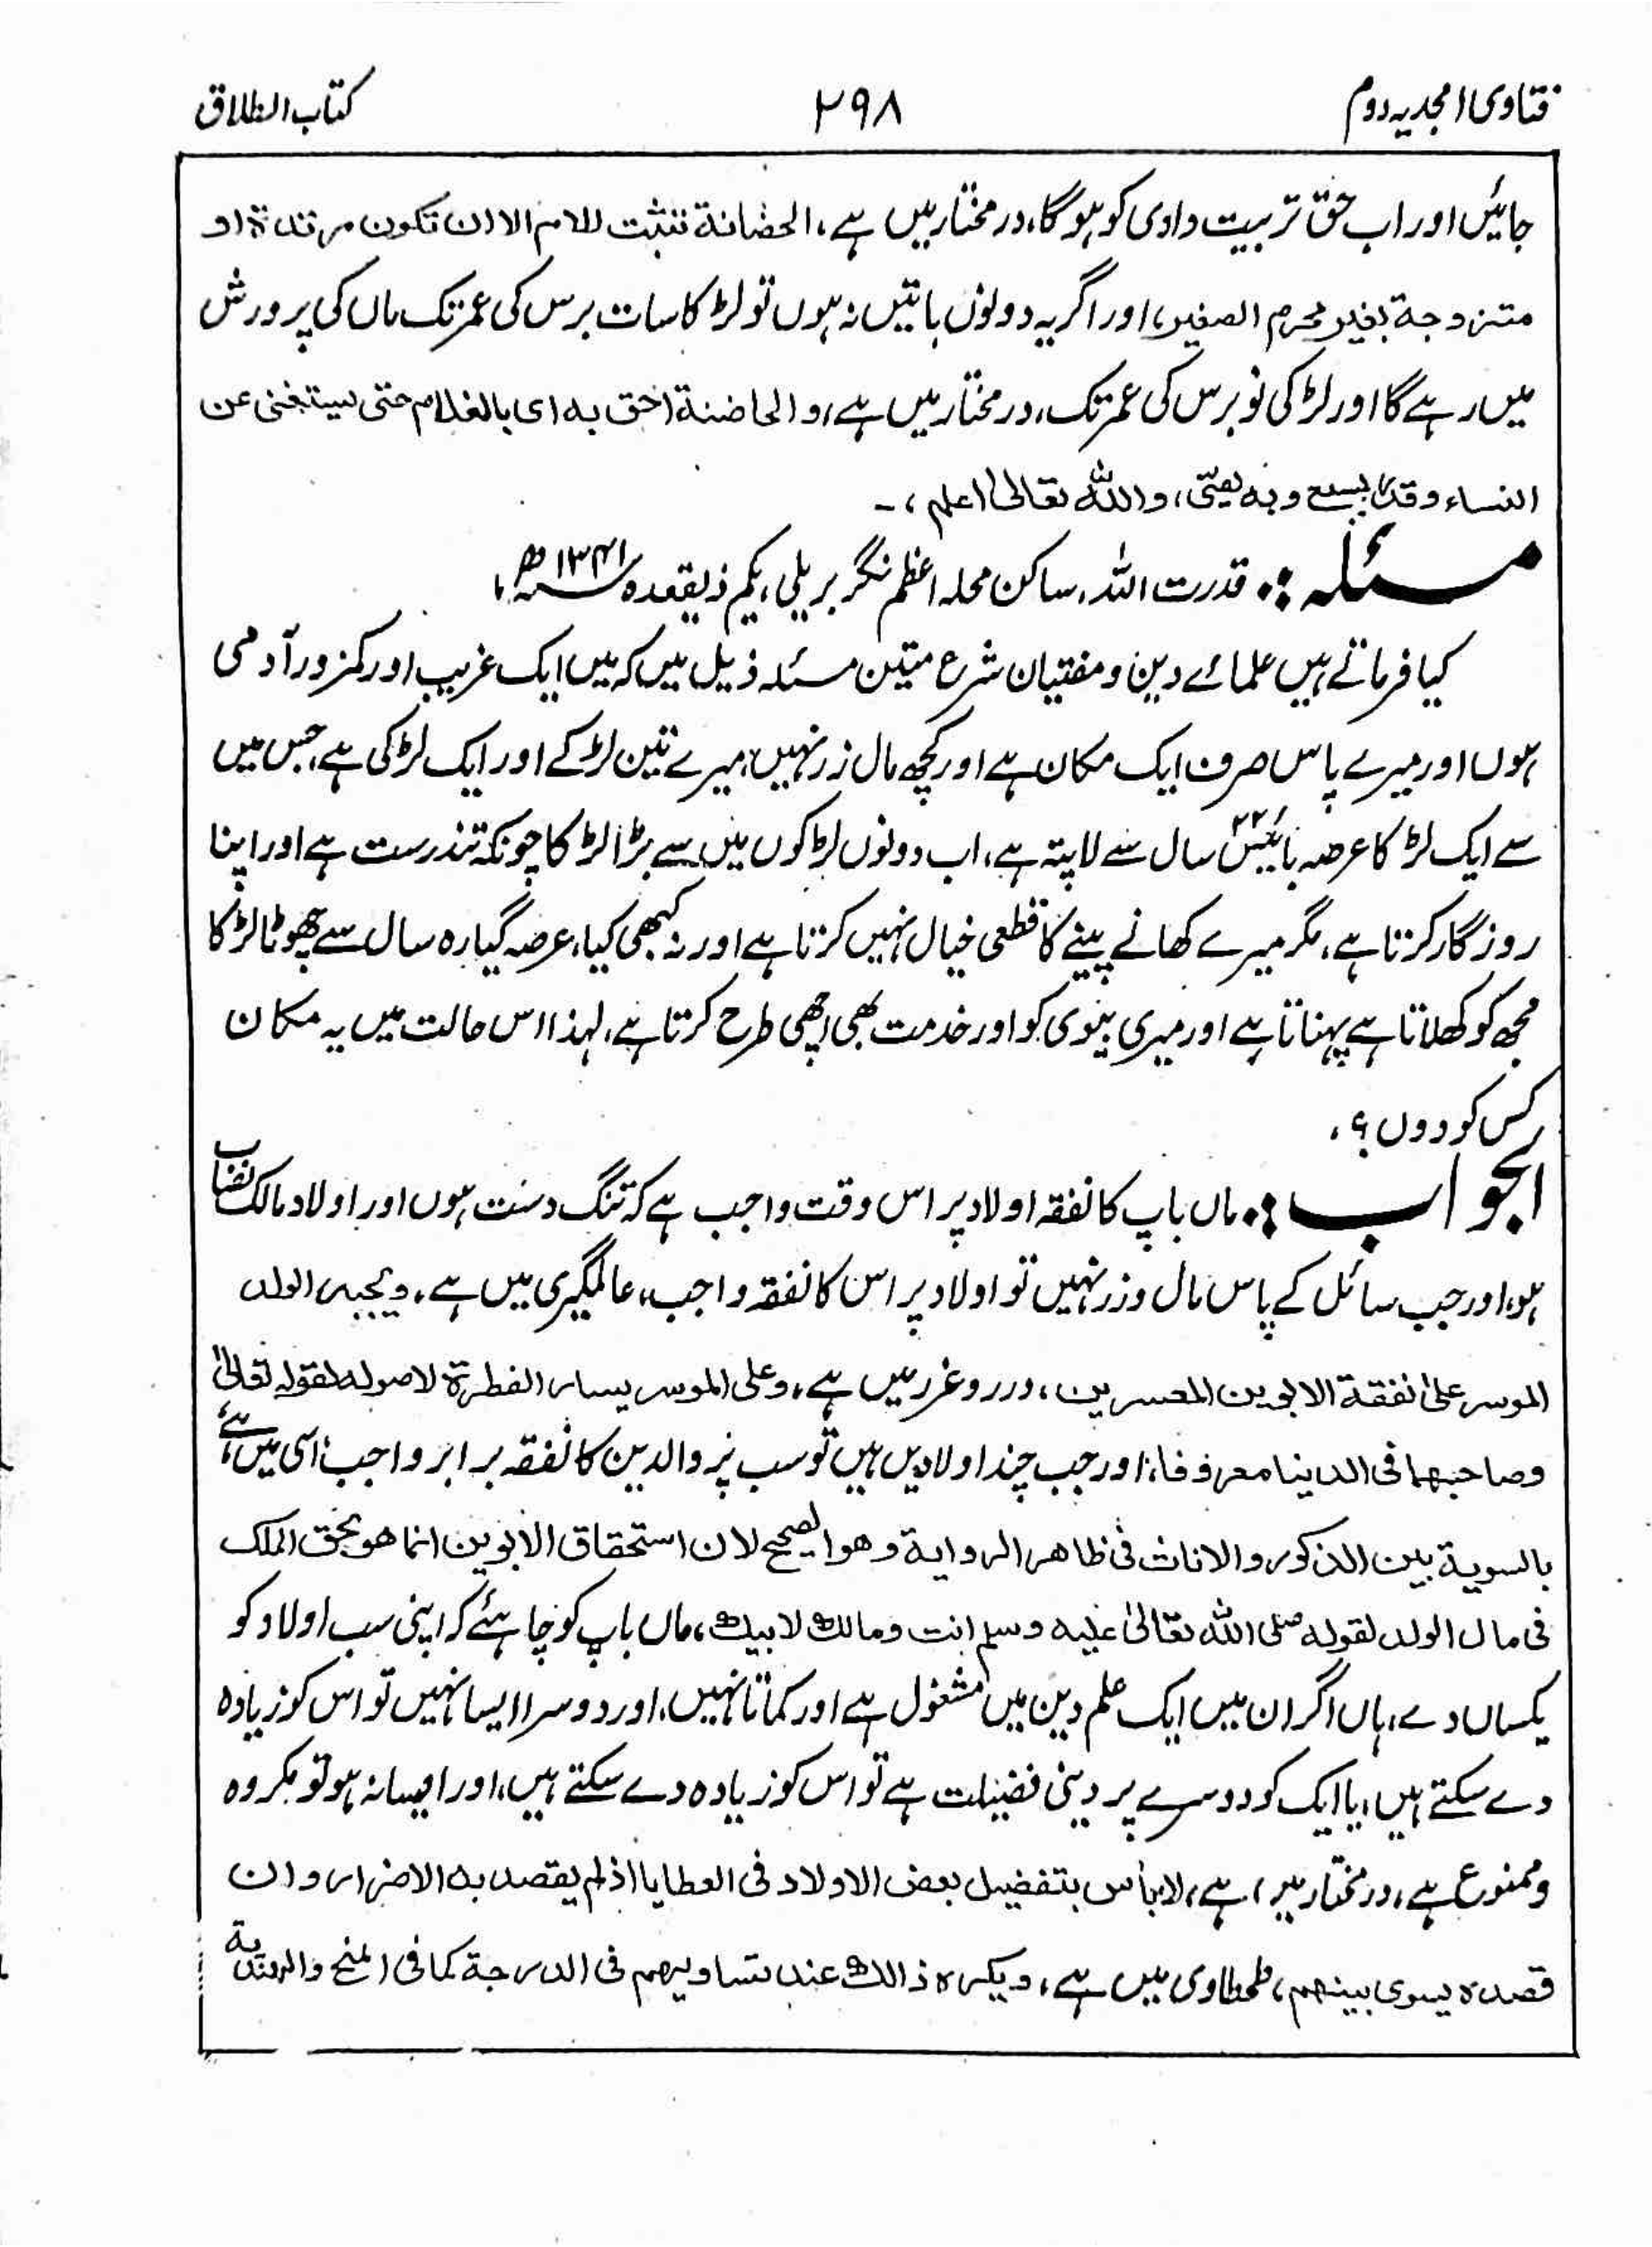 فتاوی امجدیہ دوم ۲۹۸ کتاب الطلاق
جائیں اور اب حق تربیت دادی کو ہوگا، در مختار میں ہے، الحضانة تثبت للام الا ان تکون مرتدة او
متزوجة بغیر محرم الصغیر، اور اگر یہ دونوں باتیں نہ ہوں تو لڑکا سات برس کی عمر تک ماں کی پرورش
میں رہے گا اور لڑکی نو برس کی عمر تک، در مختار میں ہے، والحاضنة احق به ای بالغلام حتی یستغنی عن
النساء وقدر بسبع وبه یفتی، والله تعالیٰ اعلم، ۔
مسئلہ :۔ قدرت اللہ، ساکن محلہ اعظم نگر بریلی، یکم ذیقعدہ سنہ ۱۳۴۱ھ،
کیا فرماتے ہیں علمائے دین و مفتیان شرع متین مسئلہ ذیل میں کہ میں ایک غریب اور کمزور آدمی
ہوں اور میرے پاس صرف ایک مکان ہے اور کچھ مال زر نہیں، میرے تین لڑکے اور ایک لڑکی ہے، جس میں
سے ایک لڑکا عرصہ بائیس ۲۲ سال سے لاپتہ ہے، اب دونوں لڑکوں میں سے بڑا لڑکا چونکہ تندرست ہے اور اپنا
روزگار کرتا ہے، مگر میرے کھانے پینے کا قطعی خیال نہیں کرتا ہے اور نہ کبھی کیا، عرصہ گیارہ سال سے چھوٹا لڑکا
مجھ کو کھلاتا ہے پہناتا ہے اور میری بیوی کو اور خدمت بھی اچھی طرح کرتا ہے، لہذا اس حالت میں یہ مکان
کس کو دوں؟،
الجواب :۔ ماں باپ کا نفقہ اولاد پر اس وقت واجب ہے کہ تنگ دست ہوں اور اولاد مالک نصاب
ہو، اور جب سائل کے پاس مال و زر نہیں تو اولاد پر اس کا نفقہ واجب، عالمگیری میں ہے، ویجبر الولد
الموسر علیٰ نفقة الابوین المعسرین، درر و غرر میں ہے، وعلی الموسر یسار الفطرة لاصوله لقوله تعالیٰ
وصاحبهما فی الدنیا معروفا، اور جب چند اولادیں ہیں تو سب پر والدین کا نفقہ برابر واجب، اسی میں ہے،
بالسویة بین الذکور والاناث فی ظاهر الروایة وهو الصحیح لان استحقاق الابوین انما هو بحق الملک
فی مال الولد لقوله صلی الله تعالیٰ علیه وسلم انت ومالك لابیك، ماں باپ کو چاہئے کہ اپنی سب اولاد کو
یکساں دے، ہاں اگر ان میں ایک علم دین میں مشغول ہے اور کماتا نہیں، اور دوسرا ایسا نہیں تو اس کو زیادہ
دے سکتے ہیں، یا ایک کو دوسرے پر دینی فضیلت ہے تو اس کو زیادہ دے سکتے ہیں، اور ایسا نہ ہو تو مکروہ
و ممنوع ہے، در مختار میں ہے، لاباس بتفضیل بعض الاولاد فی العطایا اذلم یقصد به الاضرار وان
قصده یسوی بینهم، طحطاوی میں ہے، ویکره ذالك عند تساویهم فی الدرجة کما فی المنح والهندیة